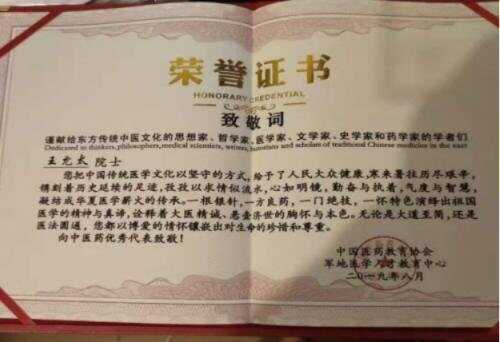 荣誉证书
HONORARY CREDENTIAL
致敬词
谨献给东方传统中医文化的思想家、哲学家、医学家、文学家、史学家和药学家的学者们
Dedicated to thinkers, philosophers, medical scientists, writers, historians and scholars of traditional Chinese medicine in the east
王尤太 院士
您把中国传统医学文化以坚守的方式，给予了人民大众健康，寒来暑往历尽艰辛，
镌刻着历史延续的足迹，孜孜以求情似流水，心如明镜，勤奋与执着，气度与智慧，
凝结成华夏医学薪火的传承。一根银针，一方良药，一门绝技，一怀特色演绎出祖国
医学的精神与真谛，诠释着大医精诚、悬壶济世的胸怀与本色。无论是大道至简，还是
医法圆通，您都以博爱的情怀镶嵌出对生命的珍惜和尊重。
向中医药优秀代表致敬！
中国医药教育协会
军地医学人才教育中心
二〇一九年八月